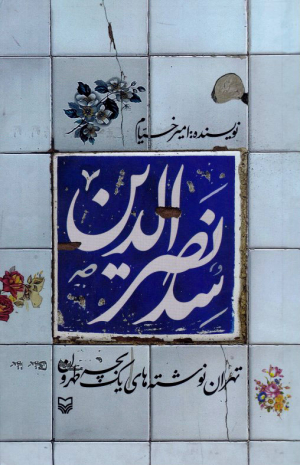 نویسنده: امیر خیام
سد نصرالدین
تهران نوشته های یک بچه طهرون